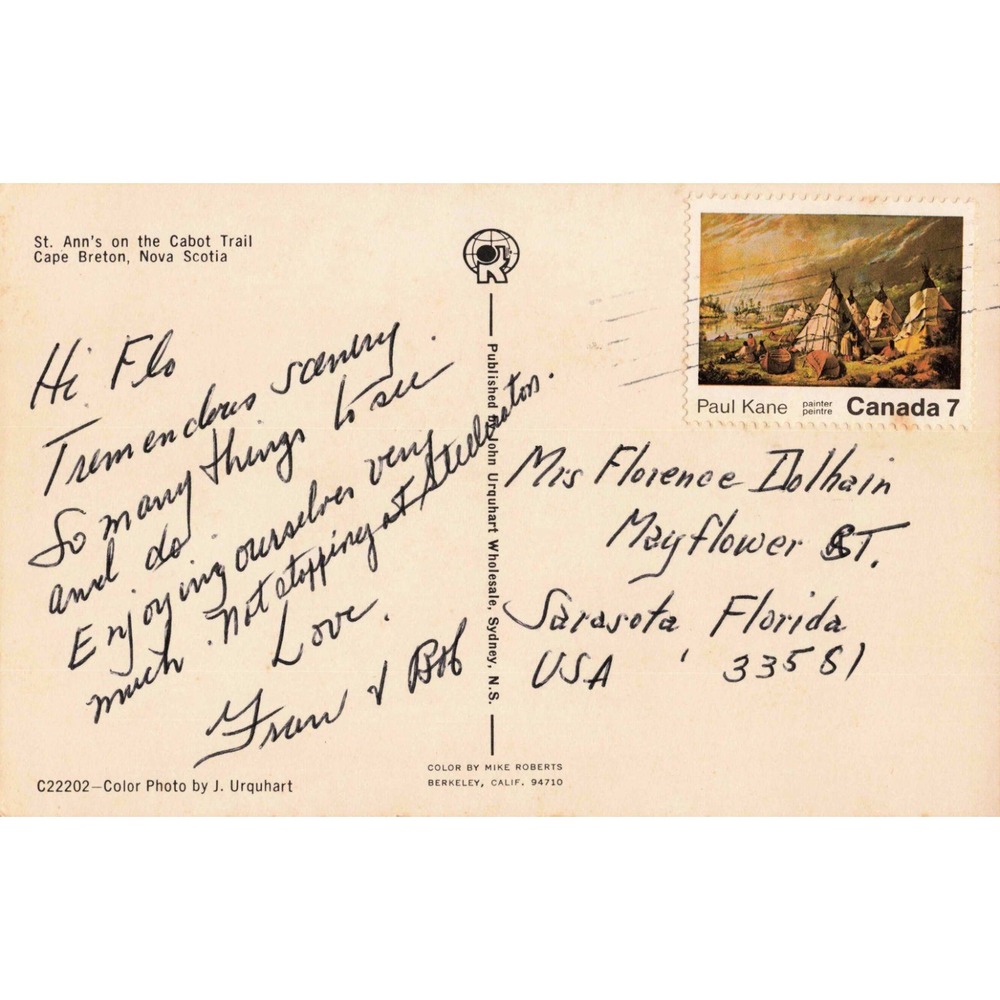 St. Ann's on the Cabot Trail
Cape Breton, Nova Scotia
Hi Flo
Tremendous scenery.
So many things to see
and do.
Enjoying ourselves very
much. Not stopping at
Love.
Fran & Bob
C22202—Color Photo by J. Urquhart
Published by John Urquhart Wholesale, Sydney, N.S.
COLOR BY MIKE ROBERTS
BERKELEY, CALIF. 94710
Paul Kane painter peintre Canada 7
Mrs Florence Dolhain
Mayflower ST.
Sarasota, Florida
USA 33581